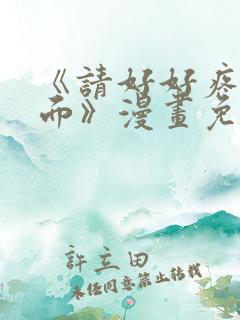 《請好好疼
而》漫畫免
許立田
未經同意禁止轉載